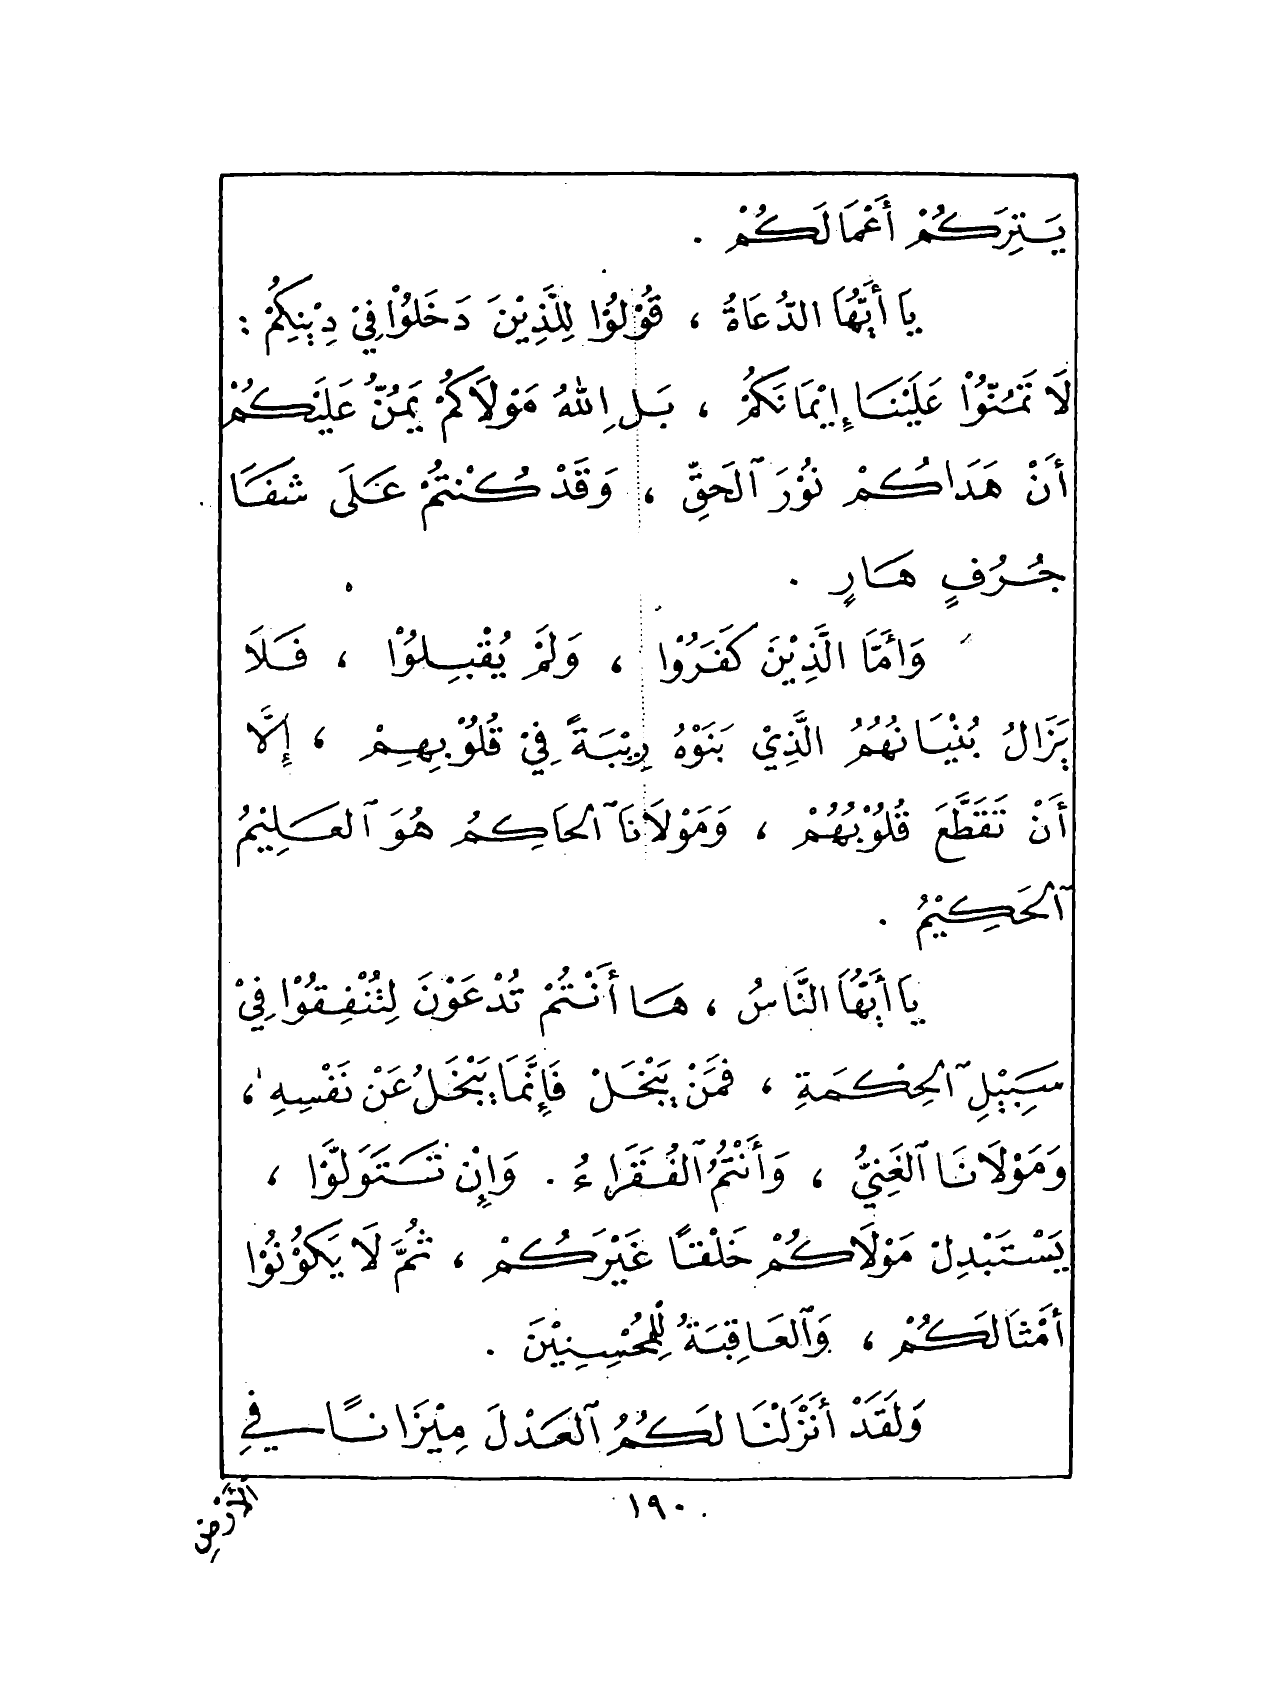 يَتِرَكُمْ أَعْمَالَكُمْ .
يَا أَيُّهَا الدُّعَاةُ ، قُوْلُوْا لِلَّذِيْنَ دَخَلُوْا فِيْ دِيْنِكُمْ :
لَا تَمُنُّوْا عَلَيْنَا إِيْمَانَكُمْ ، بَلِ اللهُ مَوْلَاكُمْ يَمُنُّ عَلَيْكُمْ
أَنْ هَدَاكُمْ نُوْرَ ٱلحَقِّ ، وَقَدْ كُنْتُمْ عَلَى شَفَا
جُرُفٍ هَارٍ .
وَأَمَّا الَّذِيْنَ كَفَرُوْا ، وَلَمْ يُقْبِلُوْا ، فَلَا
يَزَالُ بُنْيَانُهُمُ الَّذِيْ بَنَوْهُ رِيْبَةً فِيْ قُلُوْبِهِمْ ، إِلَّا
أَنْ تَقَطَّعَ قُلُوْبُهُمْ ، وَمَوْلَانَا ٱلحَاكِمُ هُوَ ٱلعَلِيْمُ
ٱلحَكِيْمُ .
يَا أَيُّهَا النَّاسُ ، هَا أَنْتُمْ تُدْعَوْنَ لِتُنْفِقُوْا فِيْ
سَبِيْلِ ٱلحِكْمَةِ ، فَمَنْ يَبْخَلْ فَإِنَّمَا يَبْخَلُ عَنْ نَفْسِهِ ،
وَمَوْلَانَا ٱلغَنِيُّ ، وَأَنْتُمُ ٱلفُقَرَاءُ . وَإِنْ تَتَوَلَّوْا ،
يَسْتَبْدِلْ مَوْلَاكُمْ خَلْقًا غَيْرَكُمْ ، ثُمَّ لَا يَكُوْنُوْا
أَمْثَالَكُمْ ، وَٱلعَاقِبَةُ لِلْمُحْسِنِيْنَ .
وَلَقَدْ أَنْزَلْنَا لَكُمُ ٱلعَدْلَ مِيْزَانًا فِي
ٱلأَرْضِ
١٩٠